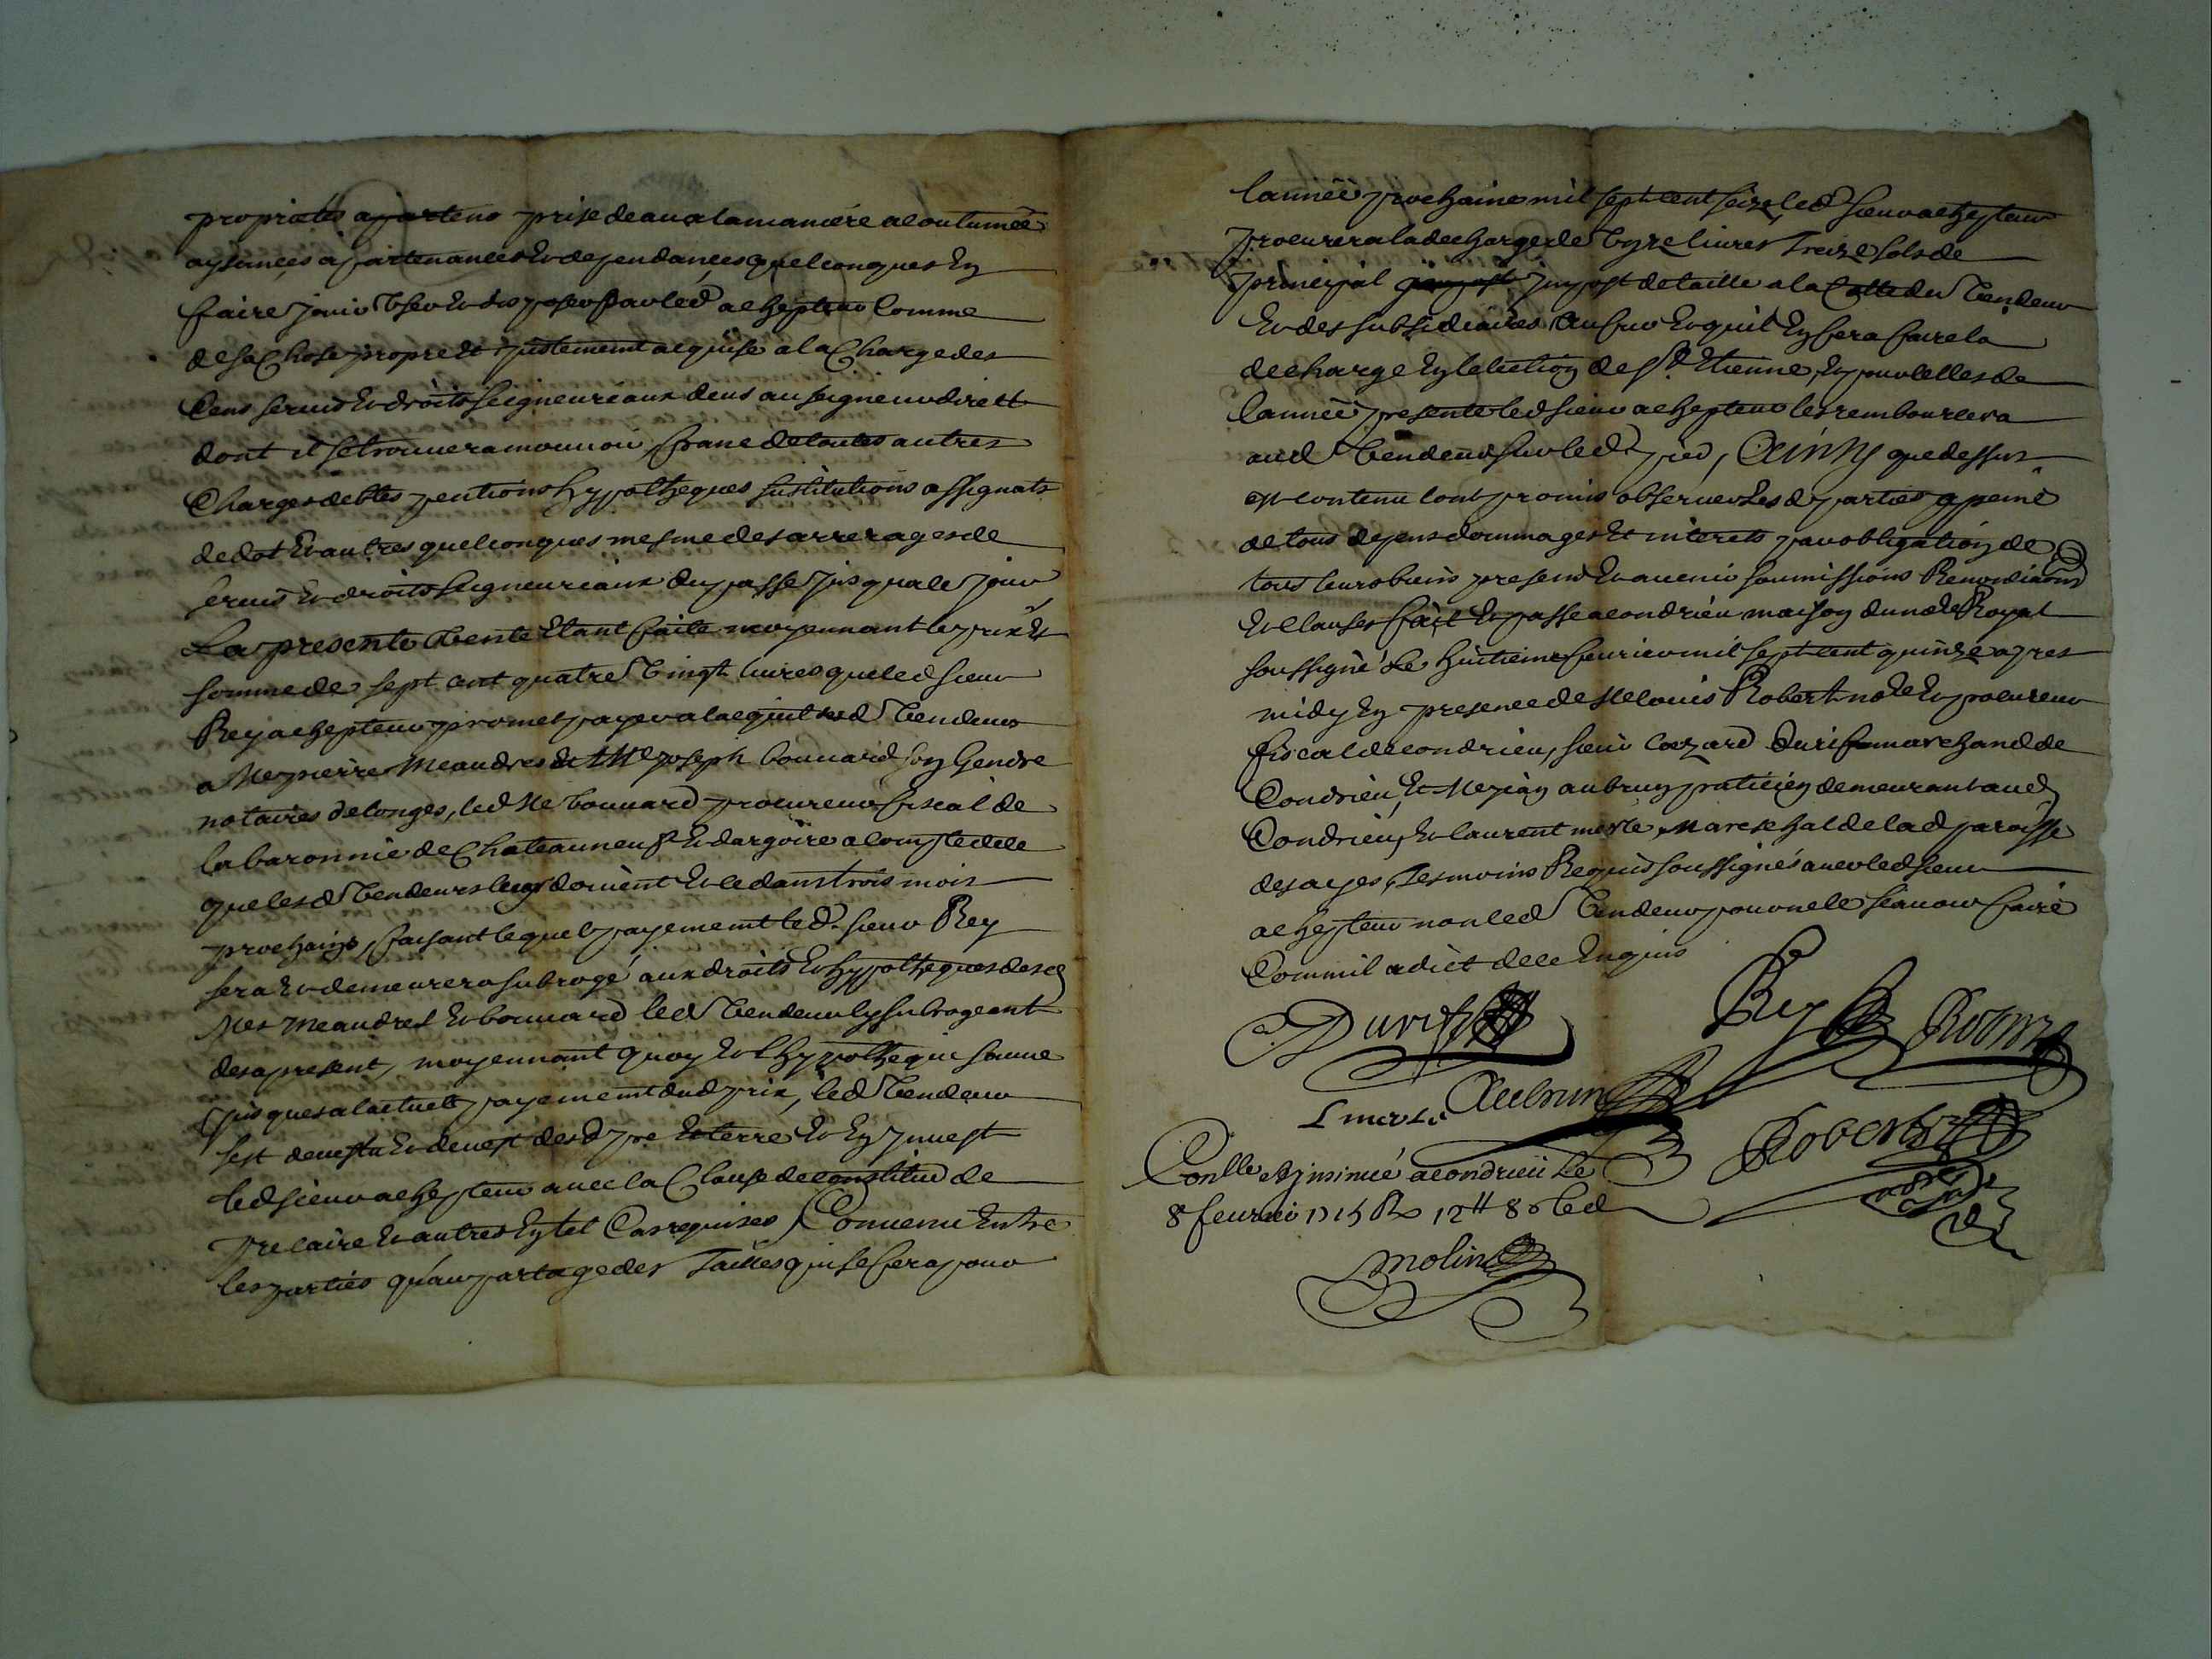 proprietés apartena prise deau a la maniére acoutumée
aysances apartenances et dependances quelconques En
faire jouir User et disposer par led achepteur Comme
de sa Chose propre et justement acquise a la Charge des
Cens servis et droits seigneuriaux deus au seigneur dirett
dont il se trouvera mouvoir franc de toutes autres
Charges debtes pentions hypotheques sustitutions assignats
de dot et autres quelconques mesme des arrerages de
servis et droits seigneuriaux du passé jusqua ce jour
La presente Vente Etant faite moyennant le prix Et
somme de sept cent quatre Vingt livres que led sieur
Rey achepteur promet payer a lacquit dud Vendeur
a Me pierre Meandres et Me joseph bonnard son Gendre
notaires de longes, led Me bonnard procureur fiscal de
la baronnie de Chateauneuf et dargoire a compte de ce
que lesd Vendeurs leurs doivent Et ce dans trois mois
prochains, faisant lequel payement led. sieur Rey
sera et demeurera subrogé aux droits et hypotheques desd
Mes Meandres et bonnard led Vendeur ly subrogeant
des a present, moyennant quoy et lhypotheque sauve
jusques a lactuel payement dud prix, led Vendeur
sest devestu et devest desd pre et terre et En Jnvest
led sieur achepteur avec la Clause de constitut de
precaire et autres En tel Cas requises, Convenu Entre
les parties quau partage des Tailles qui se fera pour
lannée prochaine mil sept cent seize led sieur achepteur
procurera la decharge de Unze livres Treize sols de
principal jmpost de taille a la Cotte du Vendeur
Et des subsidiaires au fur Et quil En fera faire la
decharge En lelection de St Etienne, Et pour celles de
lannée presente led sieur achepteur les remboursera
aud Vendeur sur led pied, Ainsy que dessus
est contenu lont promis observer Lesd parties a peine
de tous depens dommages Et interets par obligation de
tous leurs biens presens Et avenir soumissions Renondiaons
Et clauses fait Et passé a condrieu maison du nore Royal
soussigné Le huitieme fevrier mil sept cent quinze apres
midy En presence de Me louis Robert nore Et procureur
fiscal de condrieu, sieur Cezard Durif marchand de
Condrieu, Et Me jan aubrun praticien demeurant aud
Condrieu, Et laurent merle Mareschal de lad paroisse
des ayes, Tesmoins Requis soussignés avec led sieur
achepteur non led Vendeur pour ne le sçauoir faire
Comme il a dict de ce Enquis
C. Durif Rey Robert
L merle Aubrun Robert
Conlle Et jnsinué a condrieu Le
8 feurier 1715 R 12tt 8s
Molin